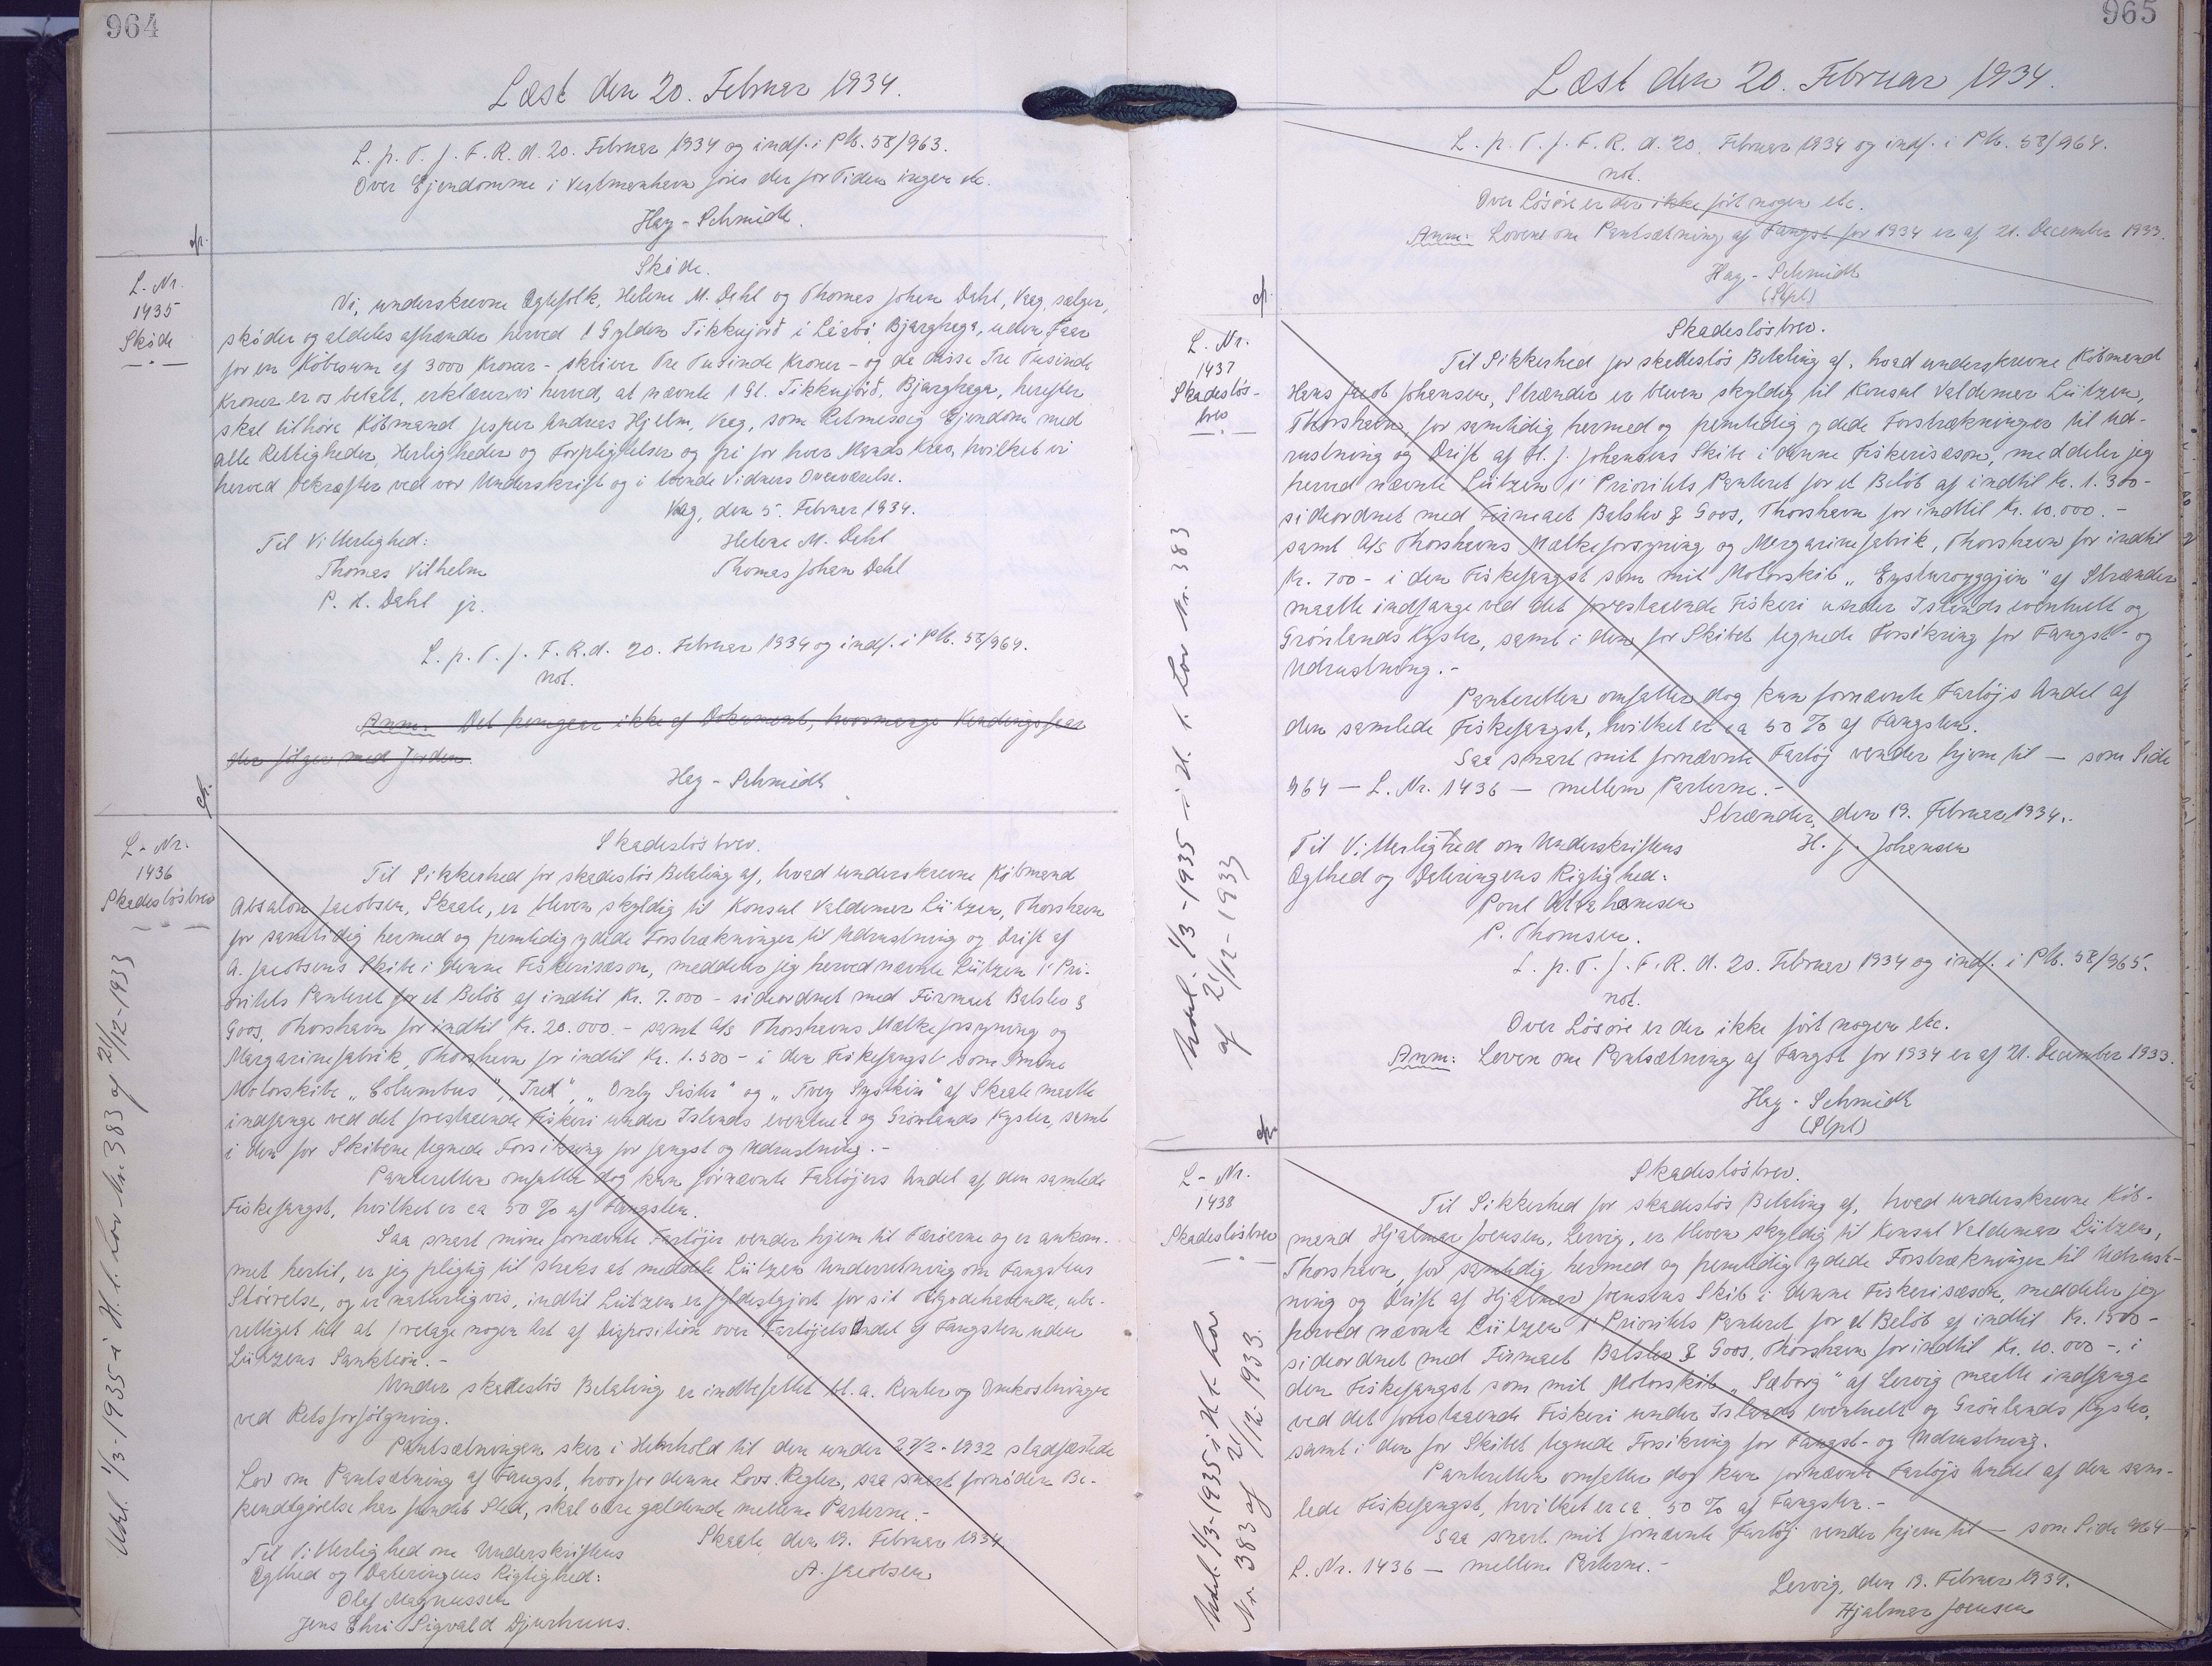 964
Læst den 20. Februar 1934.
L. p. T. f. F. R. d. 20. Februar 1934 og indf. i Pb. 58/963.
Over Ejendomme i Vestmanhavn föres der for Tiden ingen etc.
Hay-Schmidt.
cfr.
L. Nr.
1435
Sköde
Sköde.
Vi, underskrevne Ægtefolk, Helene M. Dahl og Thomas Johan Dahl, Vaag, sælger,
sköder og aldeles afhænder herved 1 Gylden Tikkujörð i Bjarghega, uden Faar
for en Köbesum af 3000 Kroner - skriver Tre Tusinde Kroner - og da disse Tre Tusinde
Kroner er os betalt, erklærer vi herved, at nævnte 1 Gl. Tikkujörð, Bjarghega, herefter
skal tilhöre Köbmand Jesper Andreas Hjelm, Vaag, som Retmessig Ejendom med
alle Rettigheder, Herligheder og Forpligtelser og fri for hver Mands Krav, hvilket vi
herved bekræfter ved vor Underskrift og i tvende Vidners Overværelse.
Vaag, den 5. Februar 1934.
Til Vitterlighed: Helene M. Dahl
Thomas Vilhelm Thomas Johan Dahl
P. H. Dahl jr.
L. p. T. f. F. R. d. 20. Februar 1934 og indf. i Pb. 58/964.
not.
Anm: Det fremgaar ikke af Dokument, hvormange Kendingsfaar
der fölger med Jorden.
Hay-Schmidt
cfr.
L - Nr.
1436
Skadeslösbrev
Udsl. 1/3-1935 i H. t. Lov Nr 383 af 21/12-1933
Skadeslösbrev.
Til Sikkerhed for skadeslös Betaling af, hvad underskrevne Köbmand
Absalon Jacobsen, Skaale, er bleven skyldig til Konsul Valdemar Lützen, Thorshavn
for samtidig hermed og fremtidig ydede Forstrækninger til Udrustning og Drift af
A. Jacobsens Skibe i denne Fiskerisæson, meddeler jeg herved nævnte Lützen 1' Pri-
oritets Panteret for et Belöb af indtil Kr. 7.000 - sideordnet med Firmaet Balslev &
Goos, Thorshavn for indtil Kr. 20.000. - samt A/S Thorshavns Mælkeforsyning og
Margarinefabrik, Thorshavn for indtil Kr. 1.500 - i den Fiskefangst som mine
Motorskibe "Columbus", "", "Only Sister" og "Tvey Systkin" af Skaale maatte
indfange ved det forestaaende Fiskeri under Islands eventuelt og Grönlands Kyster, samt
i den for Skibene tegnede Forsikring for fangst og Udrustning. -
Panteretten omfatter dog kun fornævnte Fartöjers Andel af den samlede
Fiskefangst, hvilket er ca 50 % af Fangsten.
Saa snart mine fornævnte Fartöjer vender hjem til Færöerne og er ankom-
met hertil, er jeg pligtig til straks at meddele Lützen Underretning om Fangstens
Störrelse, og er naturligvis, indtil Lützen er fyldestgjort for sit Tilgodehavende, ube-
rettiget til at foretage nogen Art af Disposition over Fartöjets Andel af Fangsten uden
Lützens Sanktion. -
Under skadeslös Betaling er indbefattet bl. a. Renter og Omkostninger
ved Retsforfölgning.
Pantsætningen sker i Henhold til den under 27/2-1932 stadfæstede
Lov om Pantsætning af Fangst, hvorfor denne Lovs Regler, saa snart fornöden Be-
kendtgörelse har fundet Sted, skal være gældende mellem Parterne. -
Skaale, den 19. Februar 1934
Til Vitterlighed om Underskriftens
Ægthed og Dateringens Rigtighed: A. Jacobsen
Olef Magnussen
Jens Chr. Sigvald Djurhuus.
965
Læst den 20. Februar 1934.
L. p. T. f. F. R. d. 20. Februar 1934 og indf. i Pb. 58/964.
not.
Over Lösöre er der ikke fört nogen etc.
Anm: Loven om Pantsætning af Fangst for 1934 er af 21. December 1933.
Hay-Schmidt
cfr.
L. Nr.
1437
Skadeslös-
brev
Udsl. 1/3-1935 i H. t. Lov Nr. 383
af 21/12-1933
Skadeslösbrev.
Til Sikkerhed for skadeslös Betaling af, hvad underskrevne Köbmand
Hans Jacob Johansen, Strænder er bleven skyldig til Konsul Valdemar Lützen,
Thorshavn, for samtidig hermed og fremtidig ydede Forstrækninger til Ud-
rustning og Drift af H. J. Johansens Skibe i denne Fiskerisæson, meddeler jeg
herved nævnte Lützen 1' Prioritets Panteret for et Belöb af indtil Kr. 1.300-
sideordnet med Firmaet Balslev & Goos, Thorshavn for indtil Kr. 10.000. -
samt A/S Thorshavns Mælkeforsyning og Margarinefabrik, Thorshavn for indtil
Kr. 700 - i den Fiskefangst som mit Motorskib "Eysturoyggjin" af Strænder
maatte indfange ved det forestaaende Fiskeri under Islands eventuelt og
Grönlands Kyster, samt i den for Skibet tegnede Forsikring for Fangst- og
Udrustning. -
Panteretten omfatter dog kun fornævnte Fartöjs Andel af
den samlede Fiskefangst, hvilket er ca 50 % af Fangsten.
Saa snart mit fornævnte Fartöj vender hjem til — som Side
964 — L. Nr. 1436 — mellem Parterne. -
Strænder, den 19. Februar 1934.
Til Vitterlighed om Underskriftens H. J. Johansen
Ægthed og Dateringens Rigtighed:
Poul Abrahamsen
P. Thomsen.
L. p. T. f. F. R. d. 20. Februar 1934 og indf. i Pb. 58/965.
not.
Over Lösöre er der ikke fört nogen etc.
Anm: Loven om Pantsætning af Fangst for 1934 er af 21. December 1933.
Hay-Schmidt
cfr.
L - Nr.
1438
Skadeslösbrev
Udsl. 1/3-1935 i H. t. Lov
Nr. 383 af 21/12-1933.
Skadeslösbrev.
Til Sikkerhed for skadeslös Betaling af, hvad underskrevne Köb-
mand Hjalmar Joensen, Lervig, er bleven skyldig til Konsul Valdemar Lützen,
Thorshavn, for samtidig hermed og fremtidig ydede Forstrækninger til Udrust-
ning og Drift af Hjalmar Joensens Skib i denne Fiskerisæson, meddeler jeg
herved nævnte Lützen 1' Prioritets Panteret for et Belöb af indtil Kr. 1500 -
sideordnet med Firmaet Balslev & Goos, Thorshavn for indtil Kr. 10.000 -, i
den Fiskefangst som mit Motorskib "Sæborg" af Lervig maatte indfange
ved det forestaaende Fiskeri under Islands eventuelt og Grönlands Kyster,
samt i den for Skibet tegnede Forsikring for Fangst- og Udrustning.
Panteretten omfatter dog kun fornævnte Fartöjs Andel af den sam-
lede Fiskefangst, hvilket er ca. 50 % af Fangsten. -
Saa snart mit fornævnte Fartöj vender hjem til — som Side 964 —
L. Nr. 1436 — mellem Parterne. -
Lervig, den 19. Februar 1934.
Hjalmar Joensen